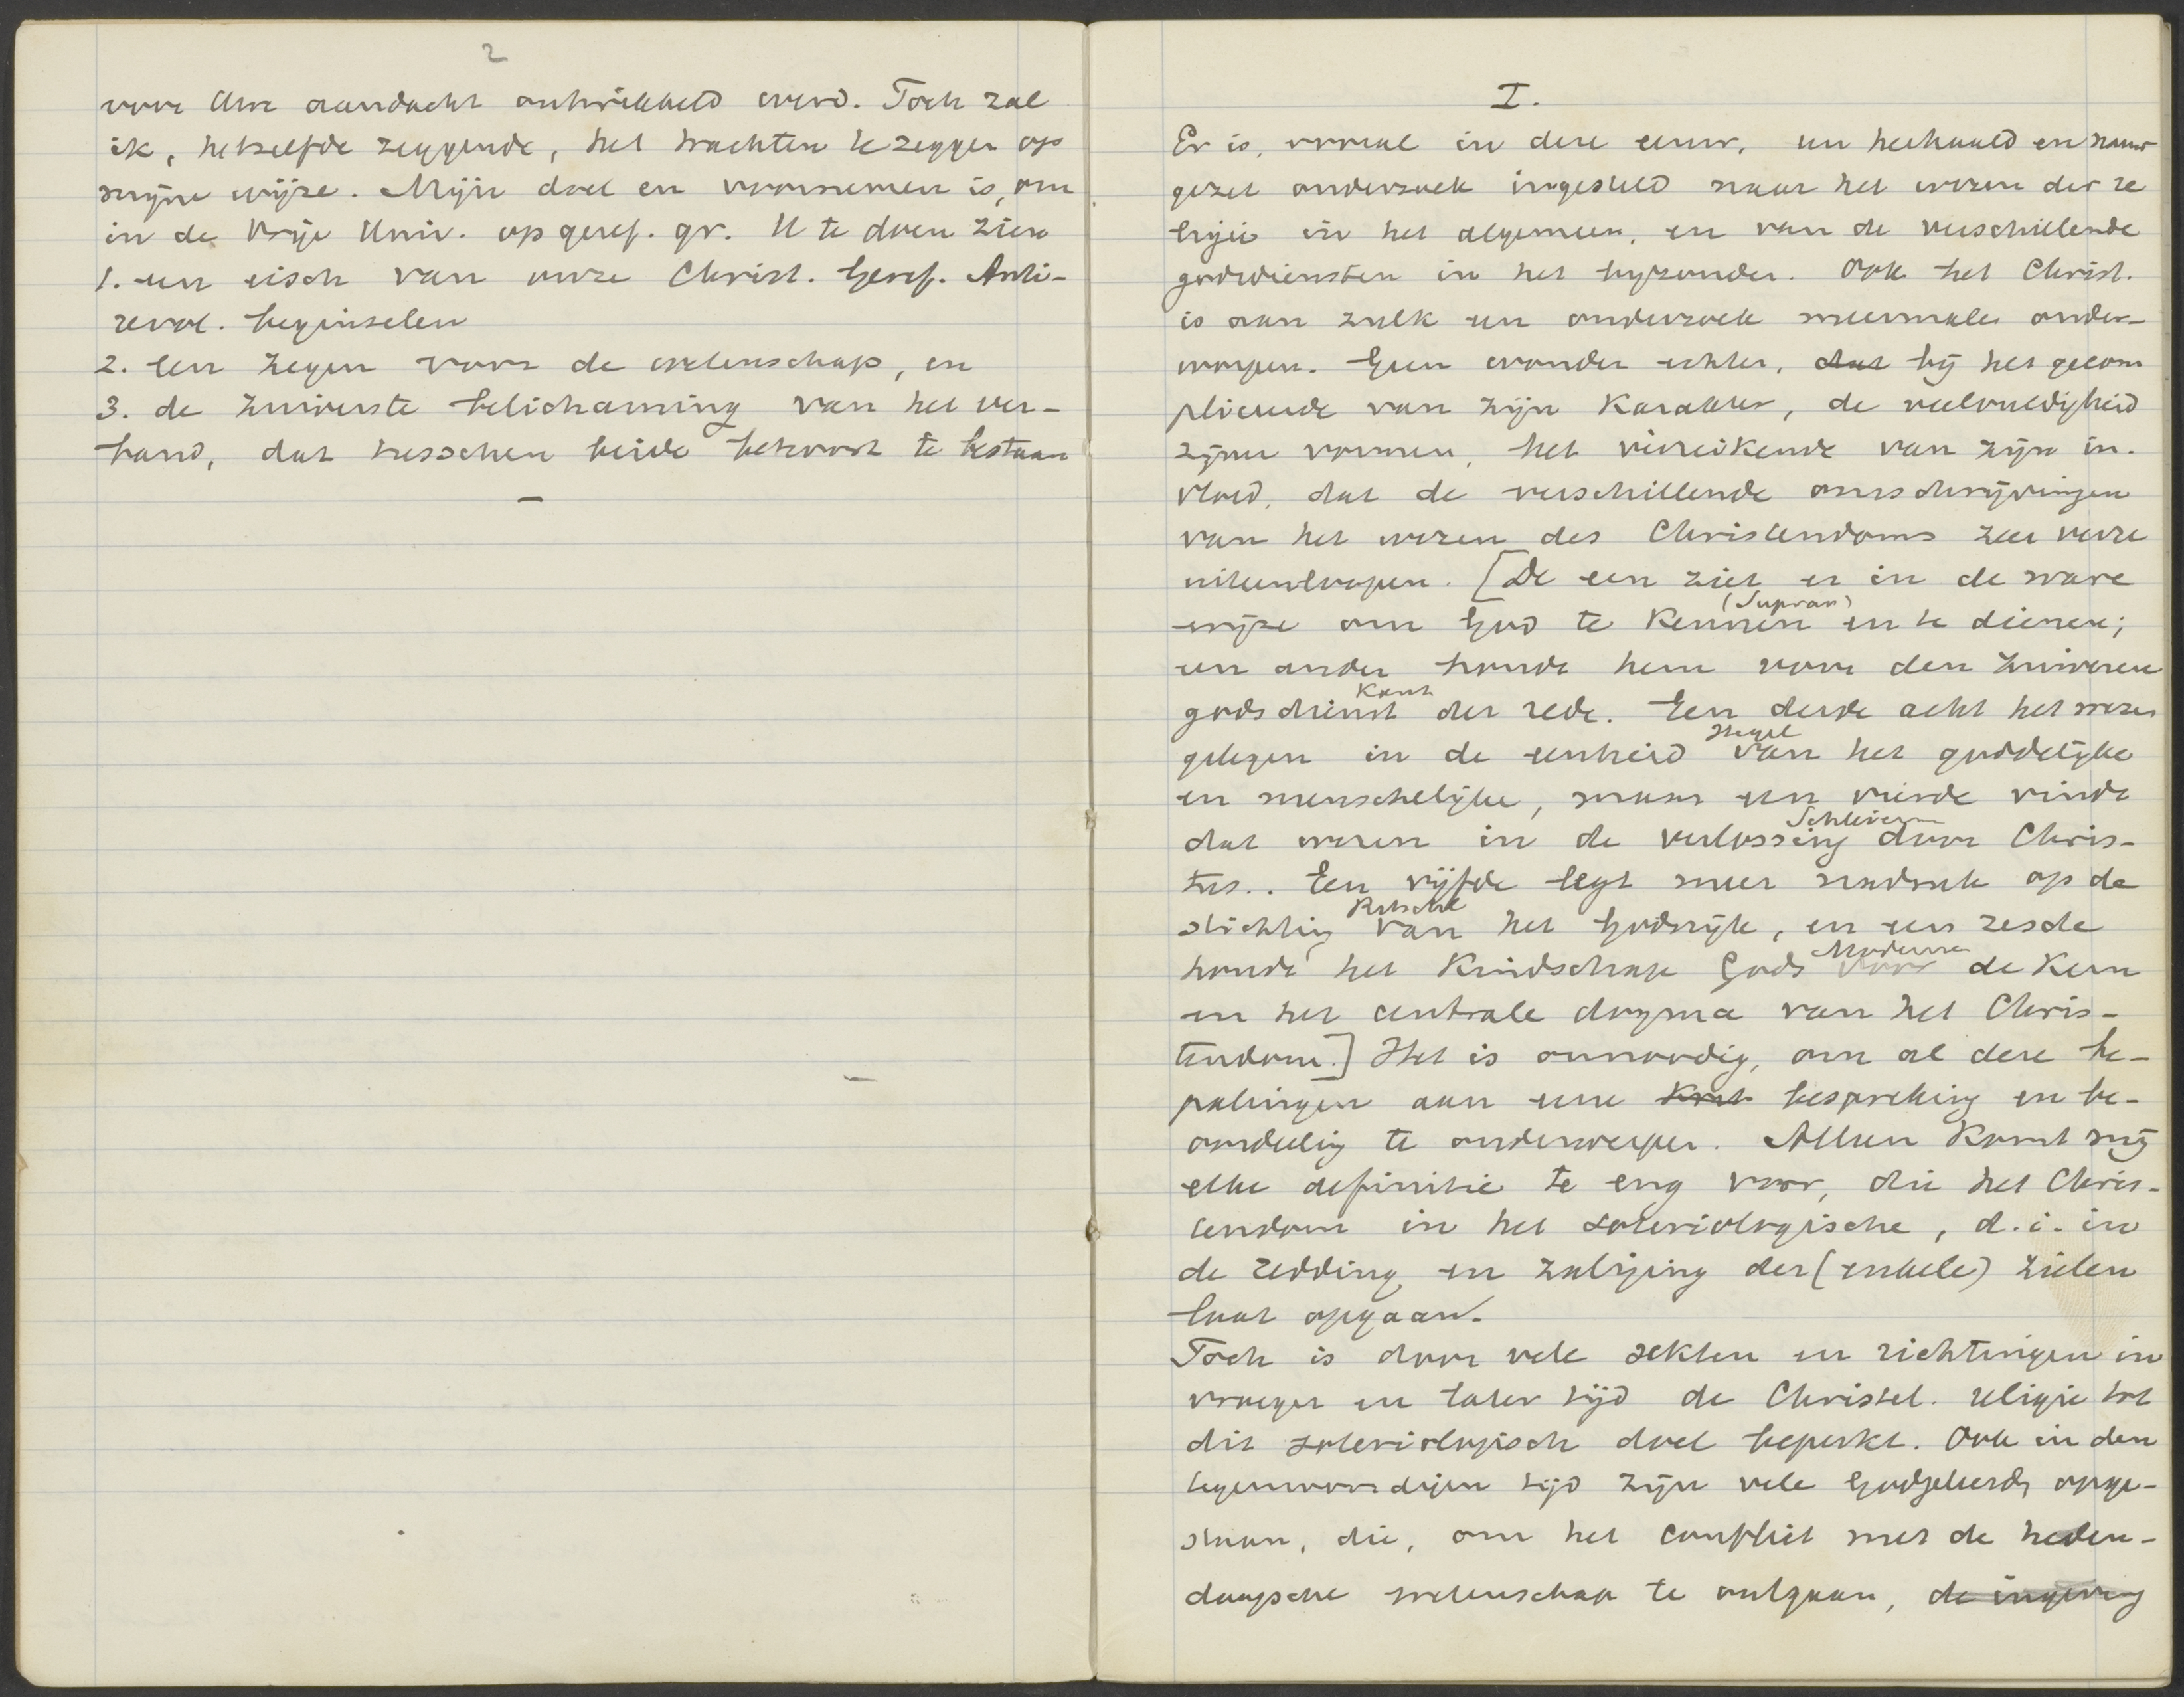 2
voor Uwe aandacht ontwikkeld werd. Toch zal
ik, hetzelfde zeggende, het trachten te zeggen op
mijne wijze. Mijn doel en voornemen is, om
in de Vrije Univ. op geref. gr. U te doen zien
1. een eisch van onze Christ. Geref. Anti-
revol. beginselen
2. een zegen voor de wetenschap, en
3. de zuiverste belichaming van het ver-
band, dat tusschen beide behoort te bestaan
I.
Er is, vooral in deze eeuw, een herhaald en nauw
gezet onderzoek ingesteld naar het wezen der re
ligie in het algemeen, en van de verschillende
godsdiensten in het byzonder. Ook het Christ.
is aan zulk een onderzoek meermalen onder-
worpen. Geen wonder echter, dat bij het gecom
pliceerde van zijn karakter, de veelvuldigheid
zijner vormen, het verreikende van zijn in-
vloed, dat de verschillende omschrijvingen
van het wezen des Christendoms zeer verre
uiteenloopen. [De een ziet er in de ware
(Supran)
wijze om God te kennen en te dienen;
een ander houdt hem voor den zuiveren
Kant
godsdienst der rede. Een derde acht het wezen
Hegel
gelegen in de eenheid van het goddelijke
en menschelijke, maar een vierde vindt
Schleierm
dat wezen in de verlossing door Chris-
tus.. Een vijfde legt meer nadruk op de
Ritschl
stichting van het Godsrijk, en een zesde
Moderne
houdt het Kindschap Gods voor de kern
en het centrale dogma van het Chris-
tendom.] Het is onnoodig, om al deze be-
palingen aan eene korte bespreking en be-
oordeeling te onderwerpen. Alleen komt mij
elke definitie te eng voor, die het Chris-
tendom in het soteriologische, d.i. in
de redding en zaliging der (enkele) zielen
laat opgaan.
Toch is door vele sekten en richtingen in
vroeger en later tijd de Christel. religie tot
dit soteriologisch doel beperkt. Ook in den
tegenwoordigen tijd zijn vele Godgeleerdn opge-
staan, die, om het conflict met de heden-
daagsche wetenschap te ontgaan, de ingeving